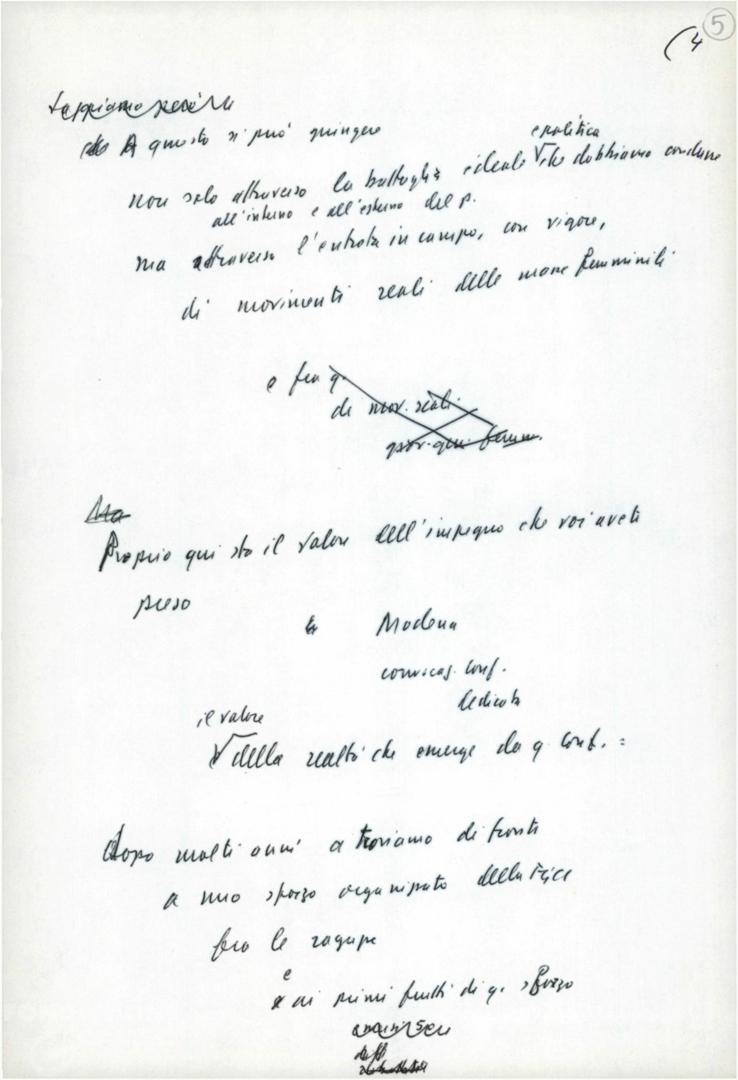 5
(4
A questo si può giungere
e politica
non solo attraverso la battaglia ideale √ che dobbiamo condurre
all'interno e all'esterno del p.
ma attraverso l'entrata in campo, con vigore,
di movimenti reali delle masse femminili
e fra q.
di mov. reali
giov. gen. femm.
Ma
Proprio qui sta il valore dell'impegno che voi avete
preso
a Modena
convocaz. conf.
dedicata
il valore
√ della realtà che emerge da q. conf. :
Dopo molti anni ci troviamo di fronte
a uno sforzo organizzato della FGCI
fra le ragazze
e
ai primi frutti di q. sforzo